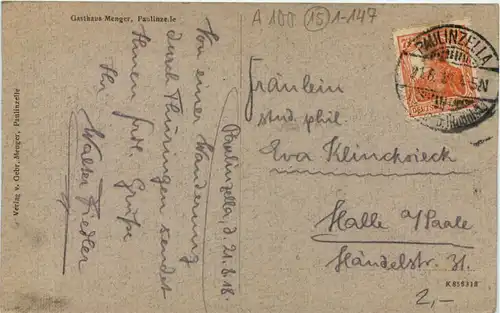 Gasthaus Menger, Paulinzelle
A 100 (15) 1-147
PAULINZELLA
Verlag v. Gebr. Menger, Paulinzelle
Paulinzella, d. 21.6.18.
Von einer Wanderung
durch Thüringen sendet
Ihnen frdl. Grüße
Ihr
Walter Fiedler
Fräulein
stud. phil.
Eva Klincksieck
Halle a/Saale
Händelstr. 31.
K 816318
2,-